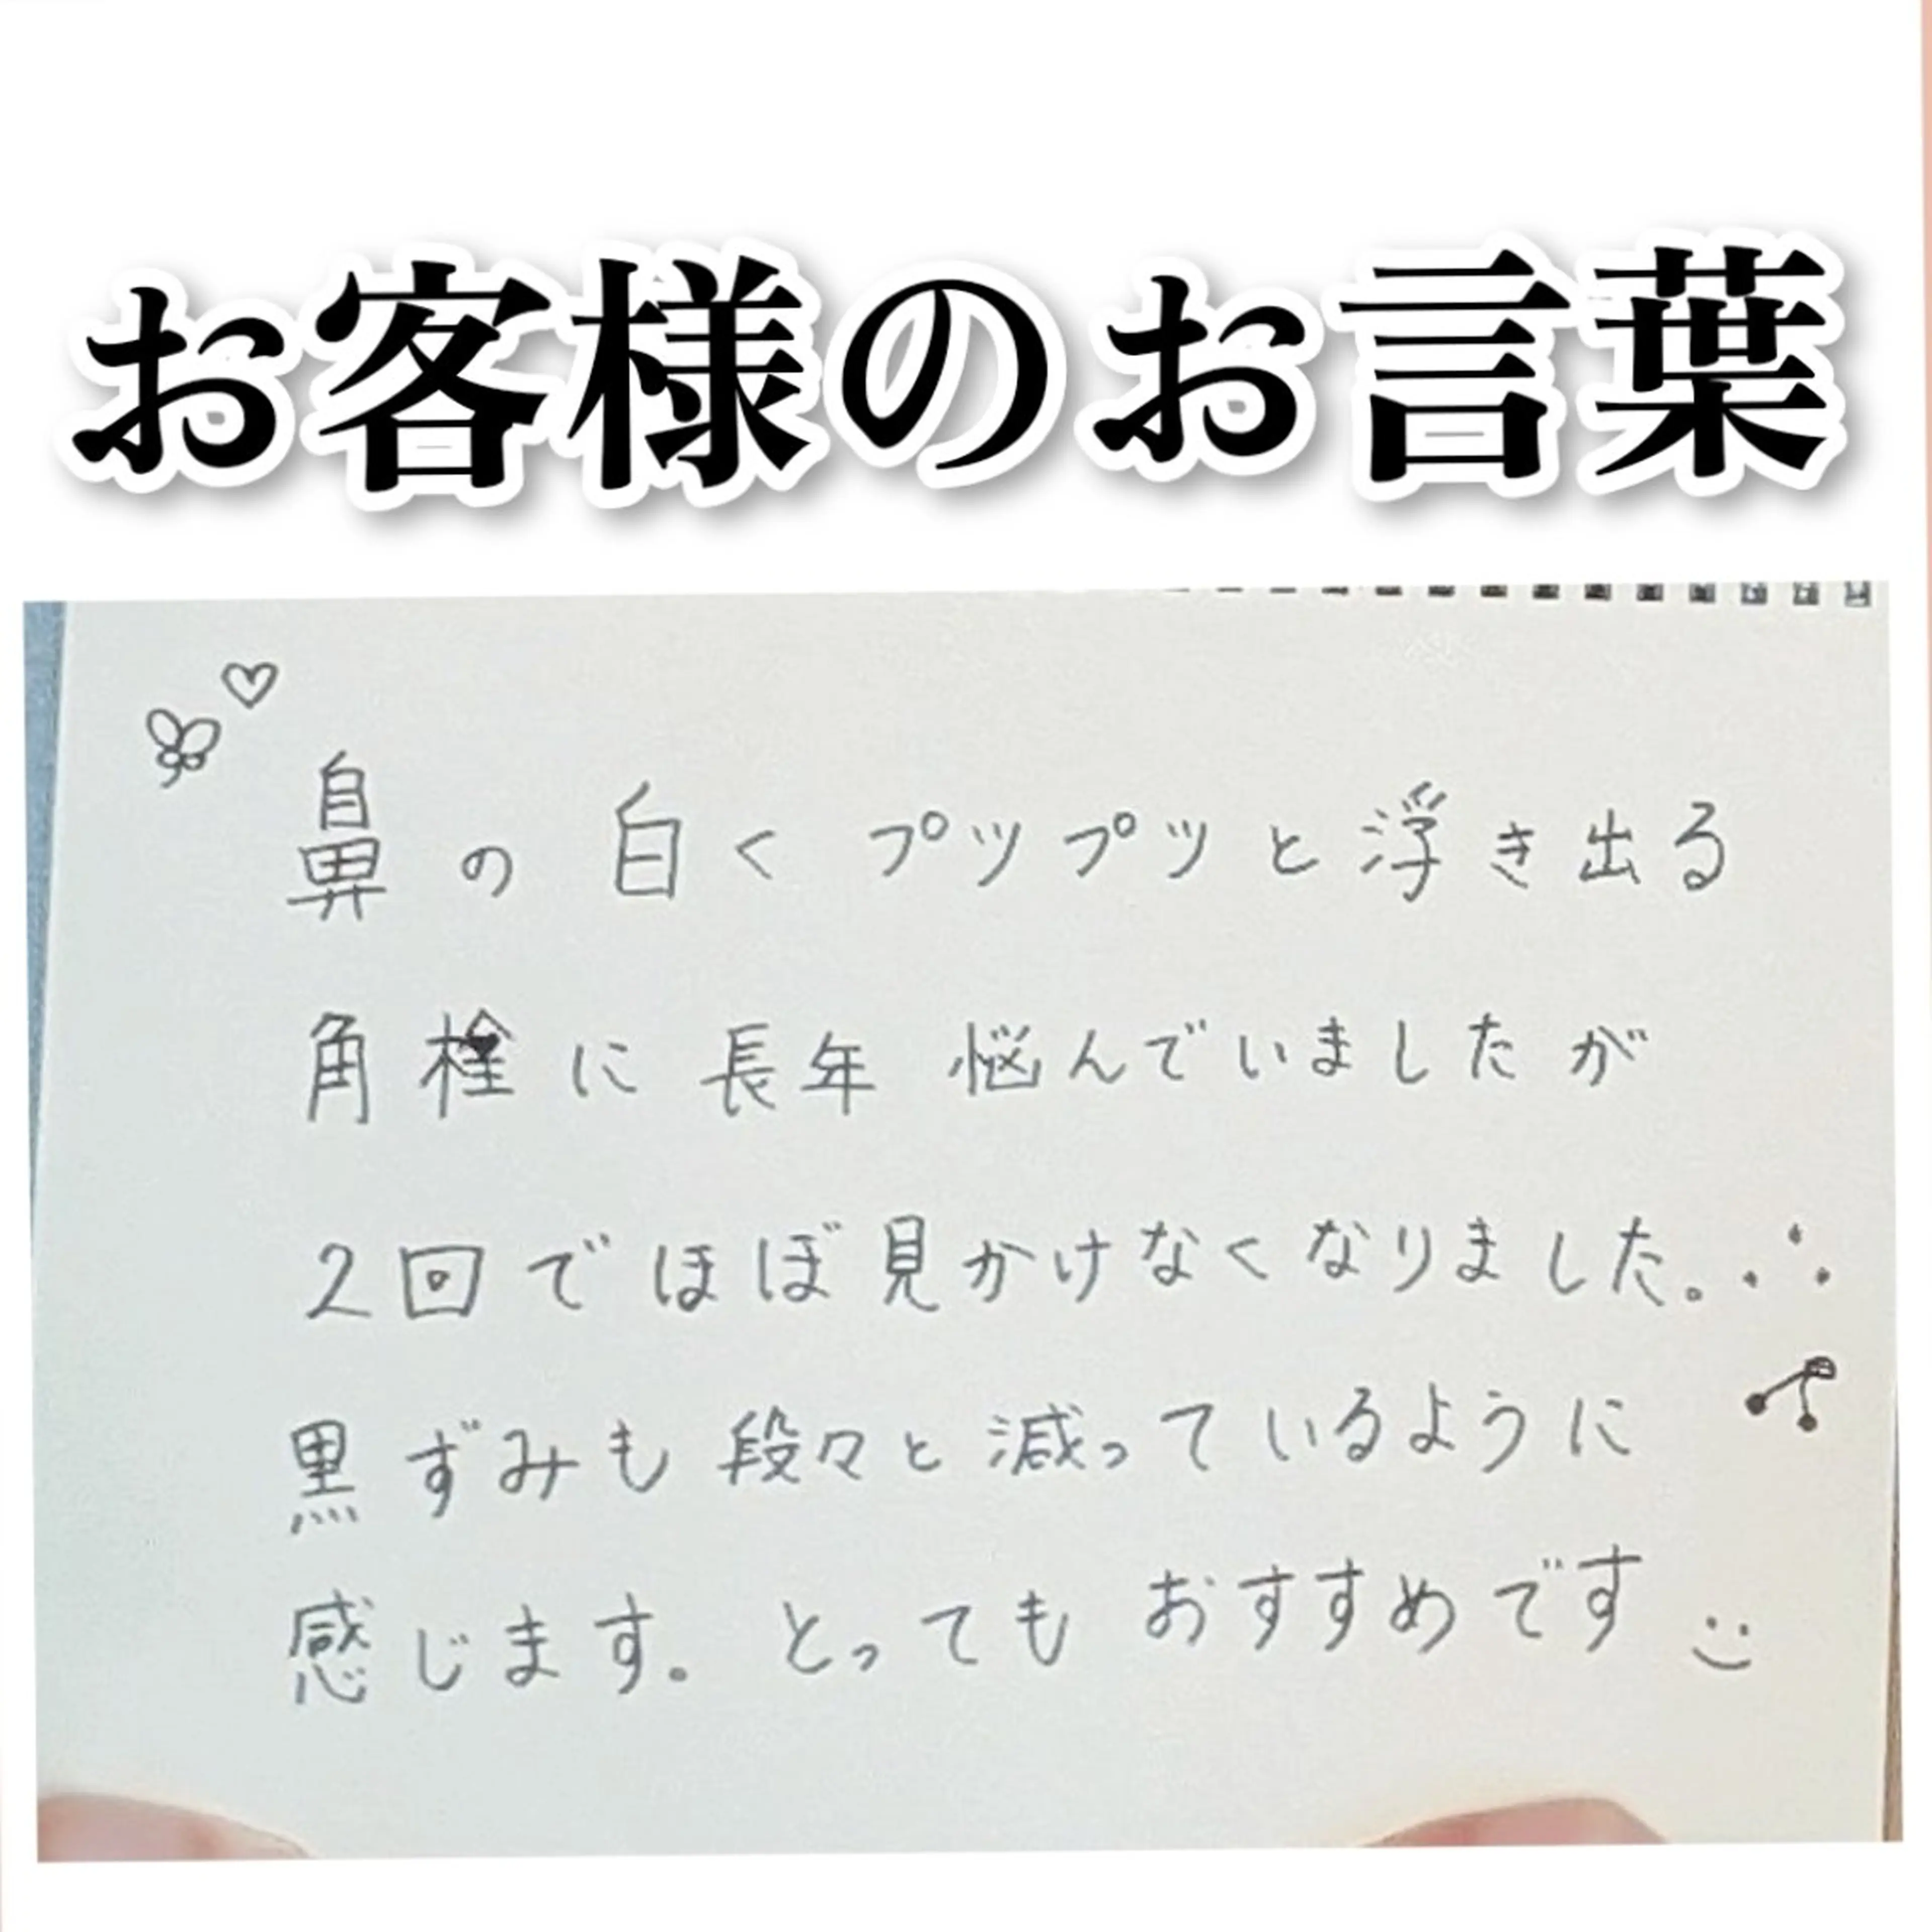 お客様のお言葉
鼻の白くプツプツと浮き出る
角栓に長年悩んでいましたが
2回でほぼ見かけなくなりました。
黒ずみも段々と減っているように
感じます。とってもおすすめです